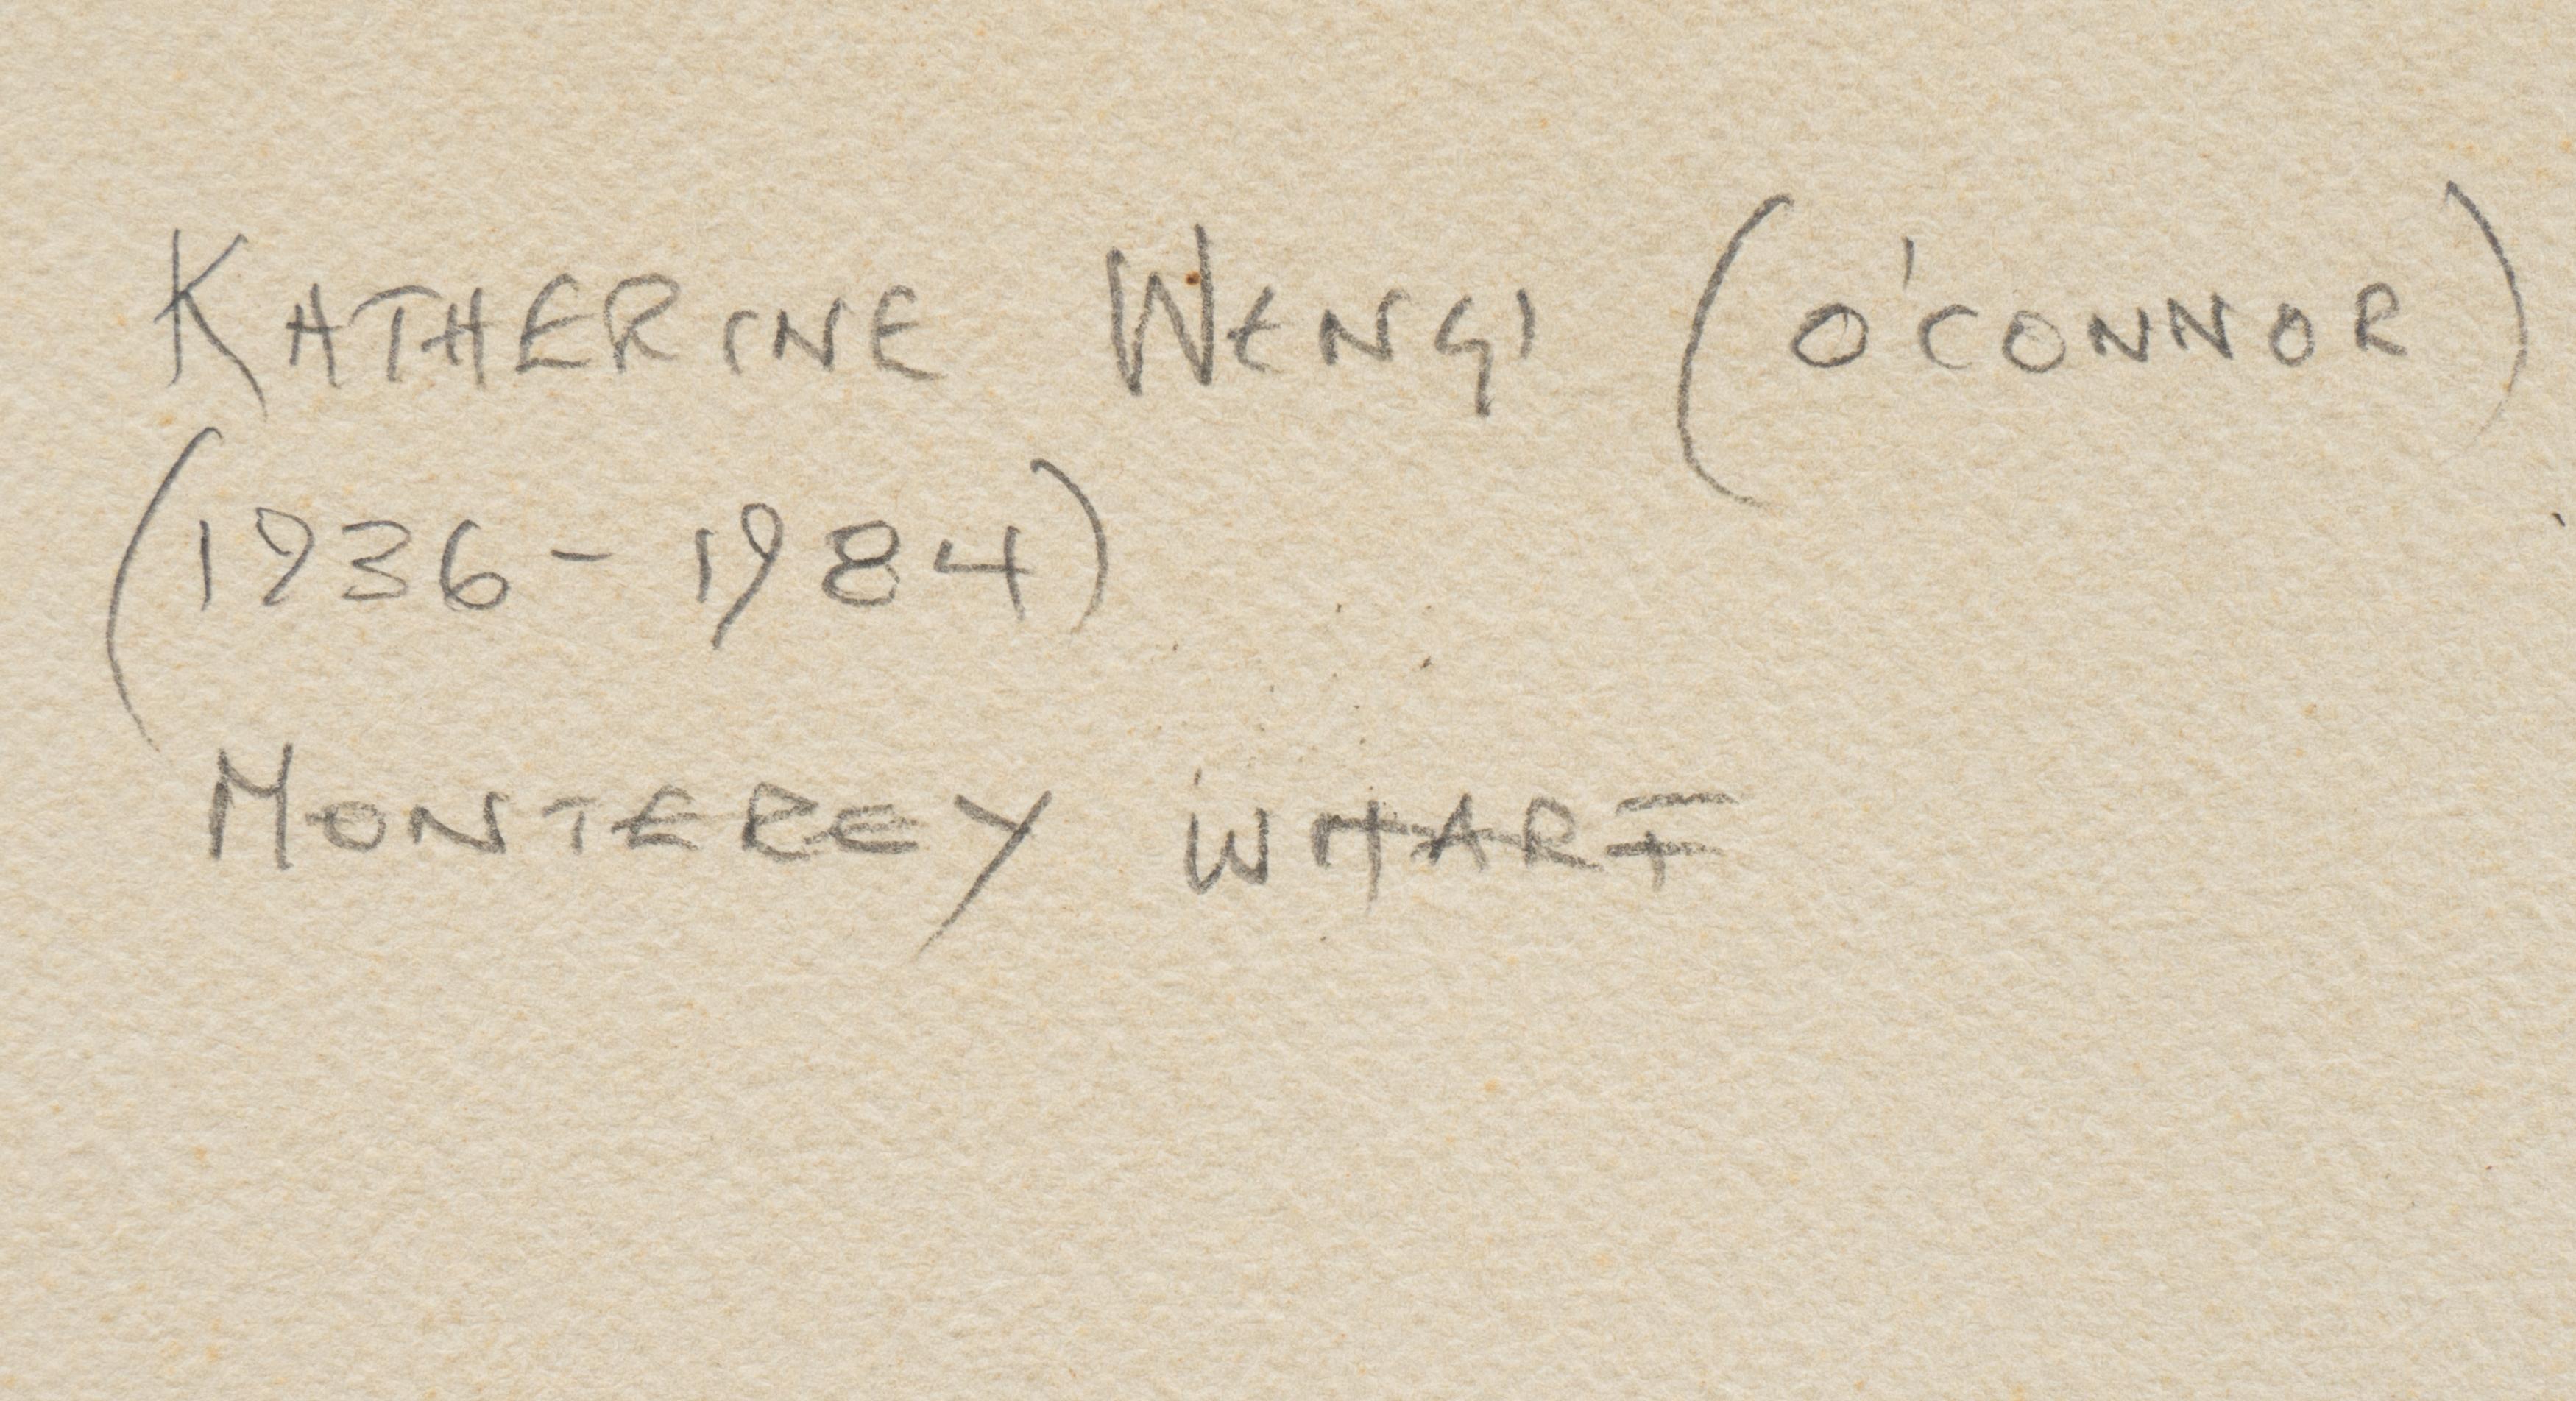 KATHERINE WENGI (O'CONNOR)
(1936 - 1984)
MONTEREY WHARF